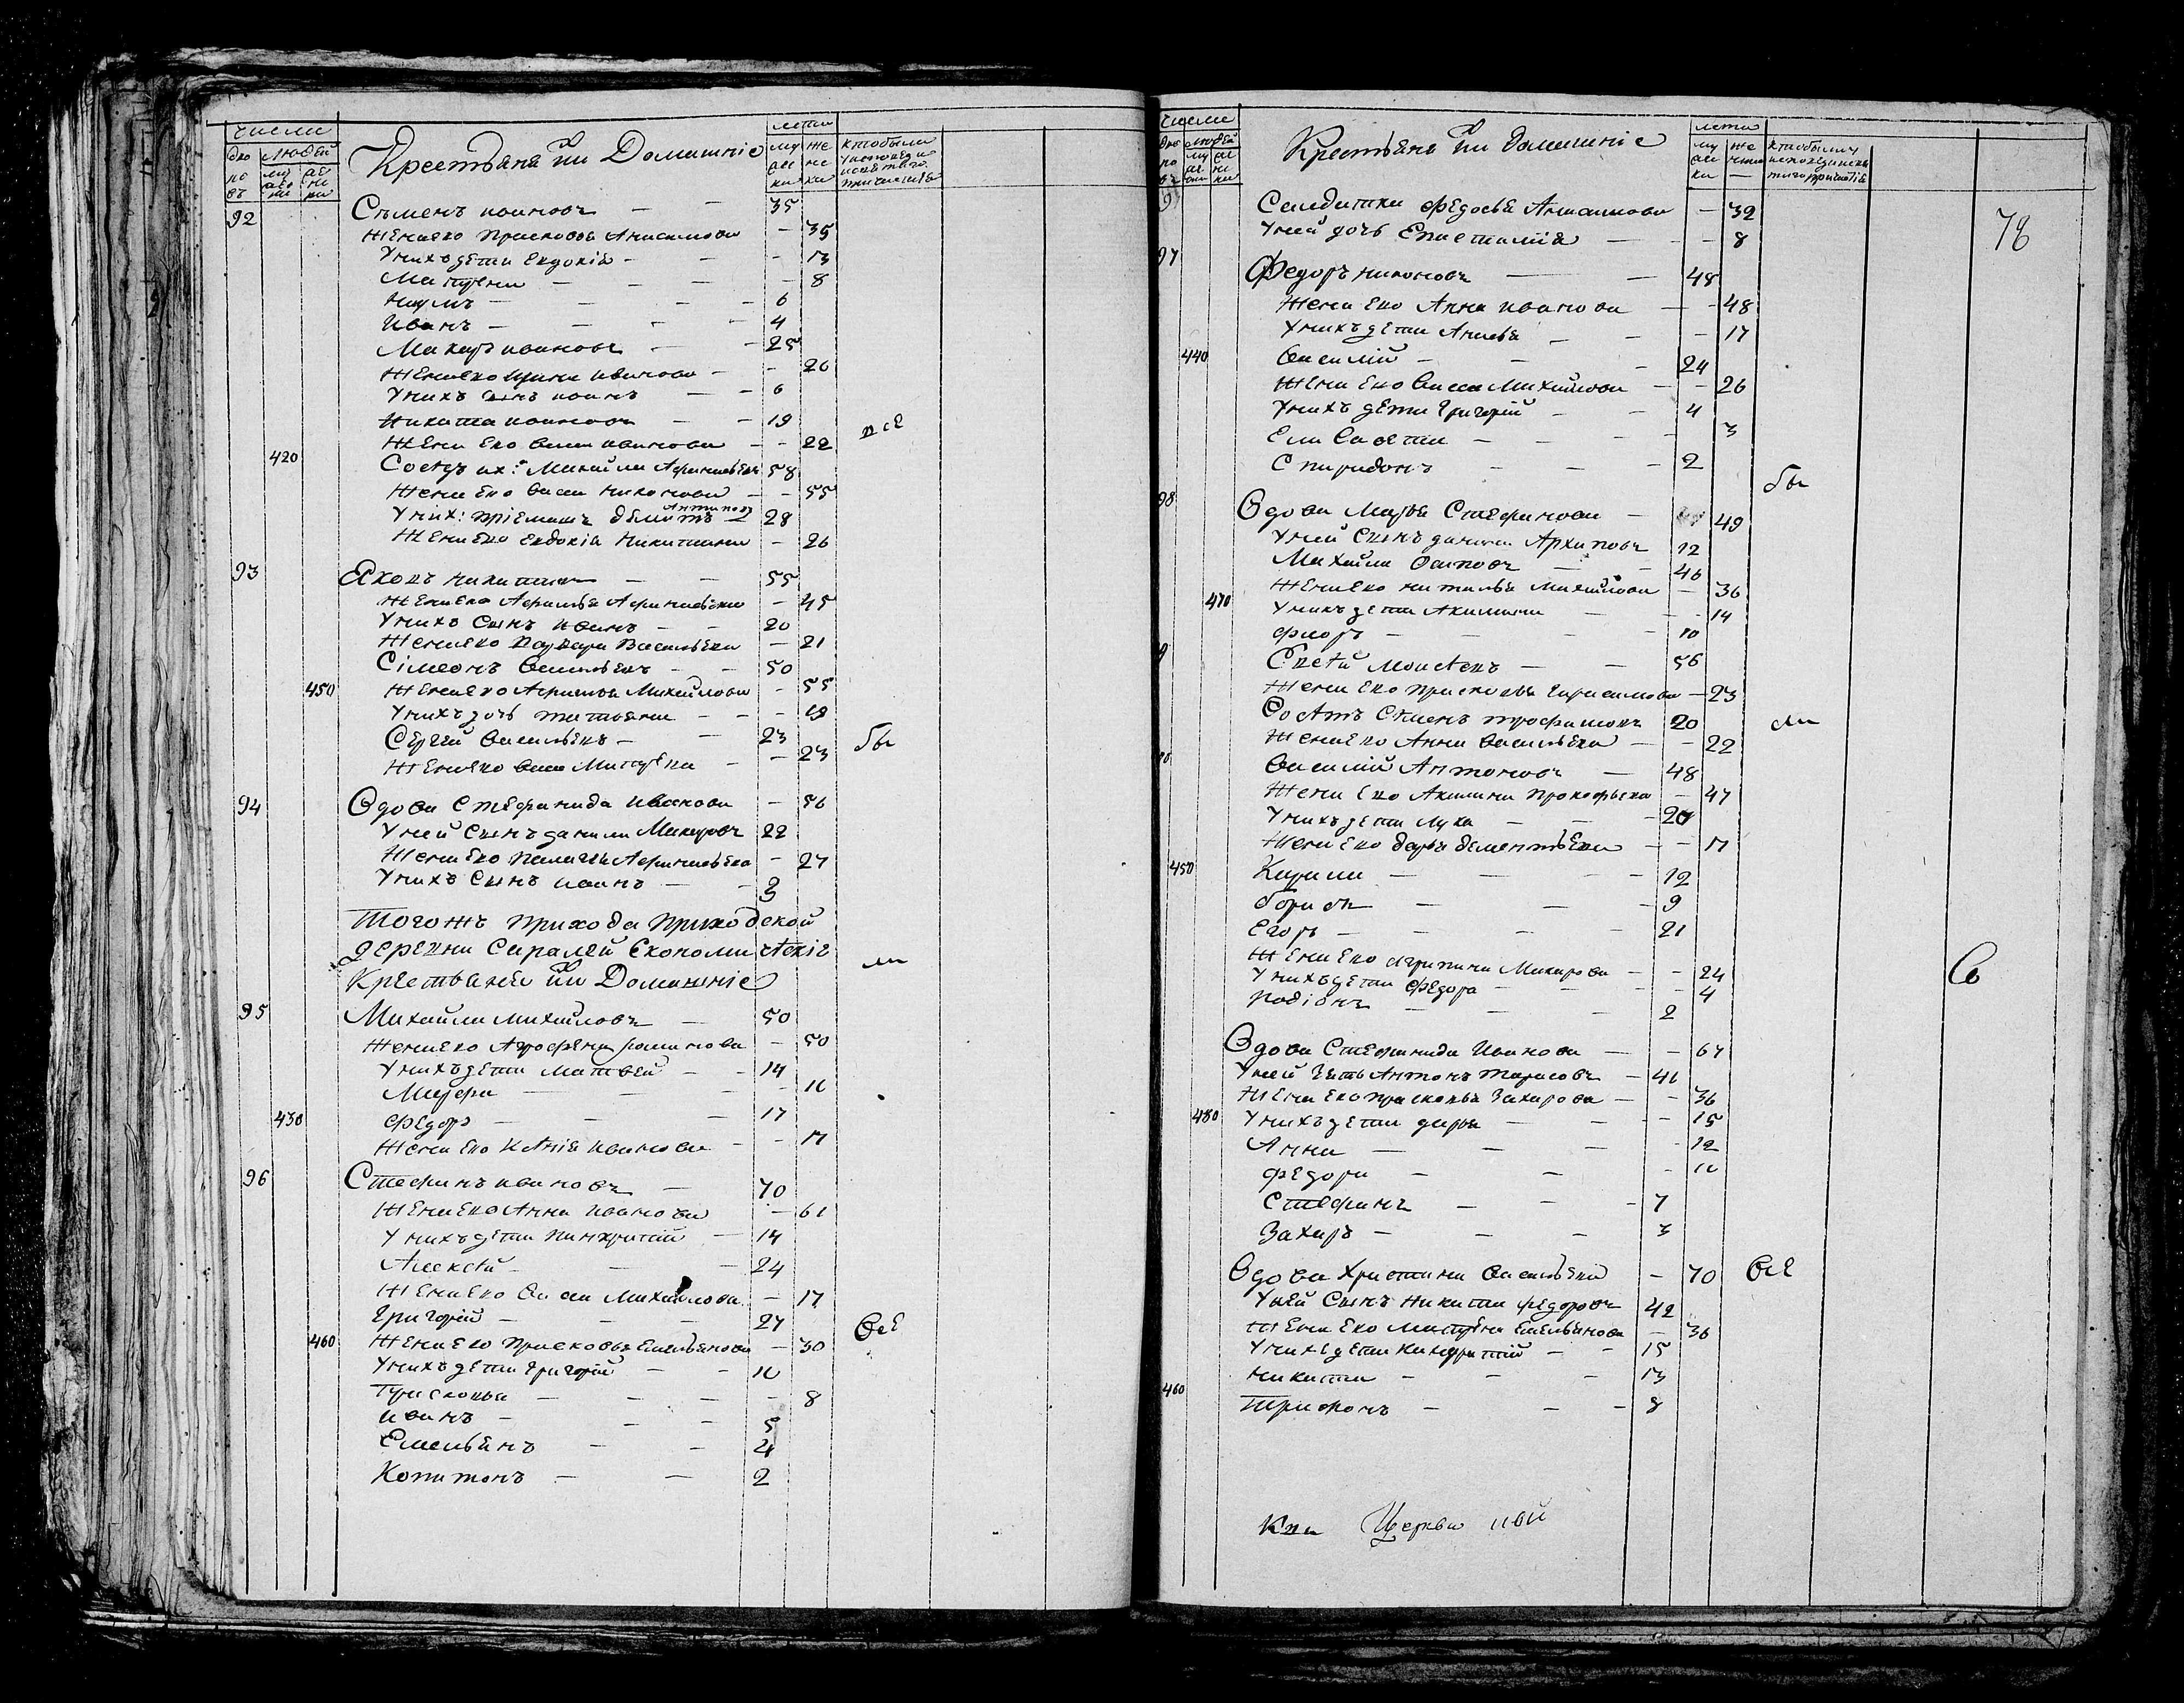 числи
лета
дворовъ
людей
мужески
женски
Крестьяне ӥи Домашніе
92 Съменъ ивановъ — — 35
жена ево прасковья Анисимова — 35
У нихъ дети Евдокія — — 13
Матрена — — — 8
Наумъ — — — 6
Иванъ — — — 4
Макаръ ивановъ — 25
жена ево ирина иванова — 26
У нихъ сынъ иванъ — 6
Никита ивановъ — 19
Жена ево васса иванова — 22
все
420 Соседъ их: Михаила Афанасьевъ 58
Жена ево васса никонова — 55
У них: пріемышъ дементъ Антиповъ 28
Жена ево евдокія Никитина — 26
93 Яковъ никитинъ — — 55
Жена ево Афимья Афанасьева — 45
У нихъ Сынъ иванъ — 20
Жена ево Варвара Васильева — 21
Сімеонъ васильевъ — 50
450 Жена ево Афимья Михайлова — 55
У нихъ дочь татьяна — 19
Сергей васильевъ — 23
бы
Жена ево васса Матвеева — 23
94 Вдова Стефанида иванова — 56
У ней Сынъ данила Макаровъ 22
Жена ево пелагея Афанасьева — 27
У нихъ Сынъ иванъ — 3
Тогожъ прихода приходской
деревни Саралей Економическіе
Крестьяне ӥи Домашніе
ли
95 Михаила михайловъ — 50
Жена ево Агрофена романова — 50
У нихъ дети Матвей — 14
Марфа — — — 11
430 Федоръ — — 17
Жена ево Ксенія иванова — 17
96 Стефанъ ивановъ — 70
Жена ево Анна иванова — 61
У нихъ дети панкратій — 14
Алексей — — 24
Жена ево васса Михайлова — 17
Григорій — — — 27
460 Жена ево прасковья емельянова — 30
все
У нихъ дети Григорій — 10
Прасковья — — — 8
иванъ — — — 5
Емельянъ — — 4
Копитонъ — — 2
числи
лета
людей
78
Крестьянъ ӥи домашніе
Салдатка федосья Анисимова — 32
У ней дочь Епистимія — — 8
97 Федоръ никоновъ — — 48
Жена ево Анна иванова — 48
У нихъ дети Анисья — — 17
440 василій — — 24
Жена ево васса Михайлова — 26
У нихъ дети григорій — 4
Елисавета — — — 3
Спиридонъ — — — 2
бы
98 Вдова Марья Стефанова — 49
У ней Сынъ данила Архиповъ 12
Михаила Осиповъ — 46
Жена ево наталья Михайлова — 36
470 У нихъ дети Акилина — — 14
флоръ — — — 10
Евсей Моисеевъ — — 56
Жена ево прасковья герасимова — 23
Соседъ Съменъ трофимовъ 20
ли
Жена ево Анна васильева — 22
василій Антоновъ — 48
Жена ево Акилина прокофьева — 47
У нихъ дети лука — — 20
Жена ево дарья дементьева — 17
450 Кирила — — — 12
борисъ — — — 9
Егоръ — — — 21
Жена ево агрипина Макарова — 24
Со
У нихъ дети федора — — 4
Родіонъ — — — 2
Вдова Стефанида Иванова — 67
У ней зять Антонъ тарасовъ — 41
Жена ево прасковья Захарова — 36
480 У нихъ дети дарья — — 15
Анна — — — 12
федора — — 10
Стефанъ — — 7
Захаръ — — — 3
Вдова Христина васильева — 70
все
У ней Сынъ никита федоровъ 42
Жена ево Матрена емельянова — 36
У нихъ дети кондратій — 15
никита — — — 13
460 Трифонъ — — — 8
Церкви